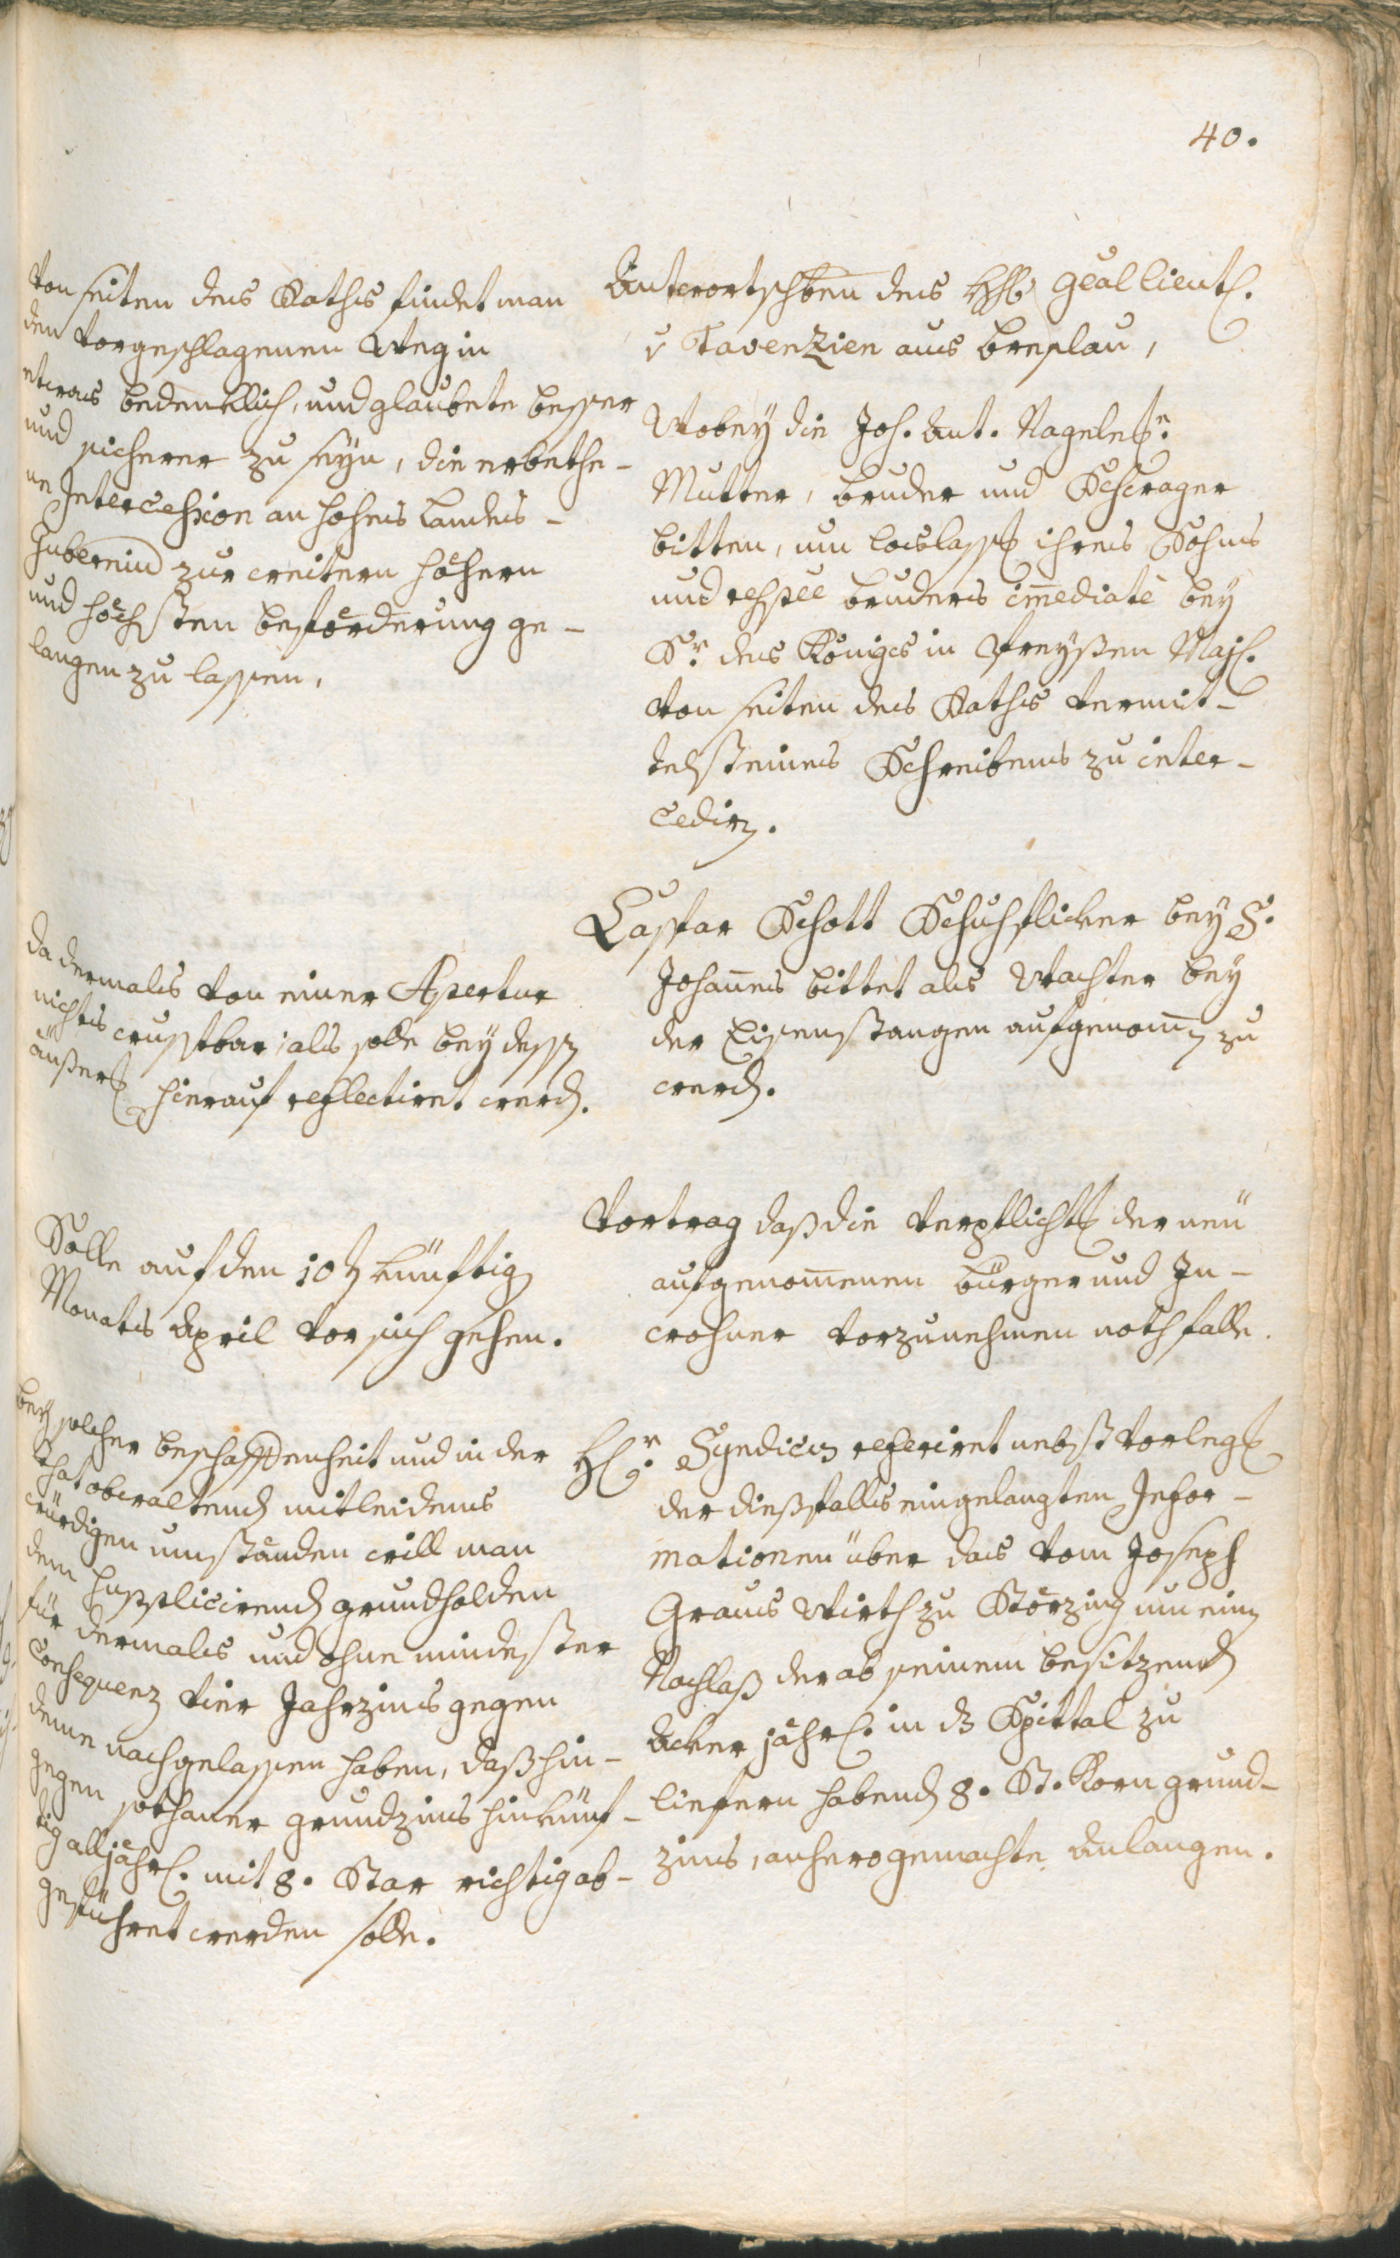 40.
Von seiten des Raths findet man
den vorgeschlagenen Weg in
etwas bedencklich, und glaubete besser
und sicherer zu seyn, die erbethe-
ne Intercession an hohes Landes-
Gubernium zur weitern höhern
und höchsten beförderung ge-
langen zu lassen.
Da dermals von einer Apertur
nichts wusstbar; als solle bey dessen
äußerl. hierauf reflectiret werd.
Solle auf den 10t künftig
Monats April vor sich gehen.
Bey solcher beschaffenheit und in der
that obwaltend mitleidens
würdigen umständen will man
dem supplicirend grundholden
für dermals und ohne mindester
Consequenz vier Jahrzins gegen
deme nachgelassen haben, daß hin-
gegen sothaner grundzins hinkünf-
tig alljährl. mit 8. Star richtig ab-
geführet werden solle.
Antwortschben des Gral lieut.
v Tavenzien aus Breslau,
Wobey die Joh. Ant. Nagele
Mutter, bruder und Schwager
bitten, um loslassg ihres Sohns
und bruders immediatè bey
Sr. des Königs in Preyßen Maj.
von seiten des Raths vermit-
telst eines Schreibens zu inter-
cedirn.
Caspar Schott Schuhflicker bey S.
Johannes bittet als Wachter bey
der Eisenstangen aufgenommen zu
werd.
Vortrag daß die Verpflichtg der neü
aufgenommenen bürger und In-
wohner vorzunehmen noth falle.
Hr. Syndicus referiret nebst vorlegg
der dießfalls eingelangten Infor-
mationen über das vom Joseph
Graus Wirth zu Störzing um einen
Nachlaß der ab seinem besitzend
Acker jährl. in ds Spittal zu
liefern habend 8. St. Korn grund-
zins, anhero gemachte Anlangen.